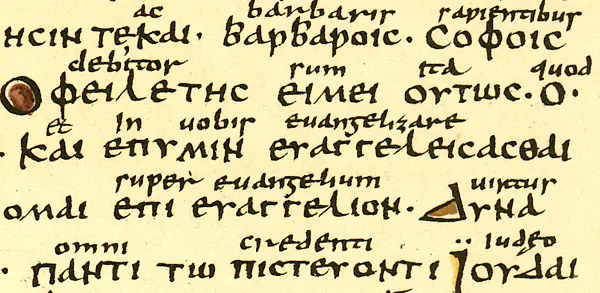 ac barbaris sapientibus
ΗCΙΝ ΤΕΚΑΙ· ΒΑΡΒΑΡΟΙC· CΟΦΟΙC
debitor sum ita quod
ΟΦΕΙΛΕΤΗC ΕΙΜΕΙ ΟΥΤΩC· Ο·
et in uobis euangelizare
· ΚΑΙ ΕΠΥΜΙΝ ΕΥΑΓΓΕΛΕΙCΑCΘΑΙ
super euangelium uirtus
ΟΜΑΙ ΕΠΙ ΕΥΑΓΓΕΛΙΟΝ· ΔΥΝΑ
omni credenti iudeo
· ΠΑΝΤΙ ΤΩ ΠΙCΤΕΥΟΝΤΙ ΪΟΥΔΑΙ